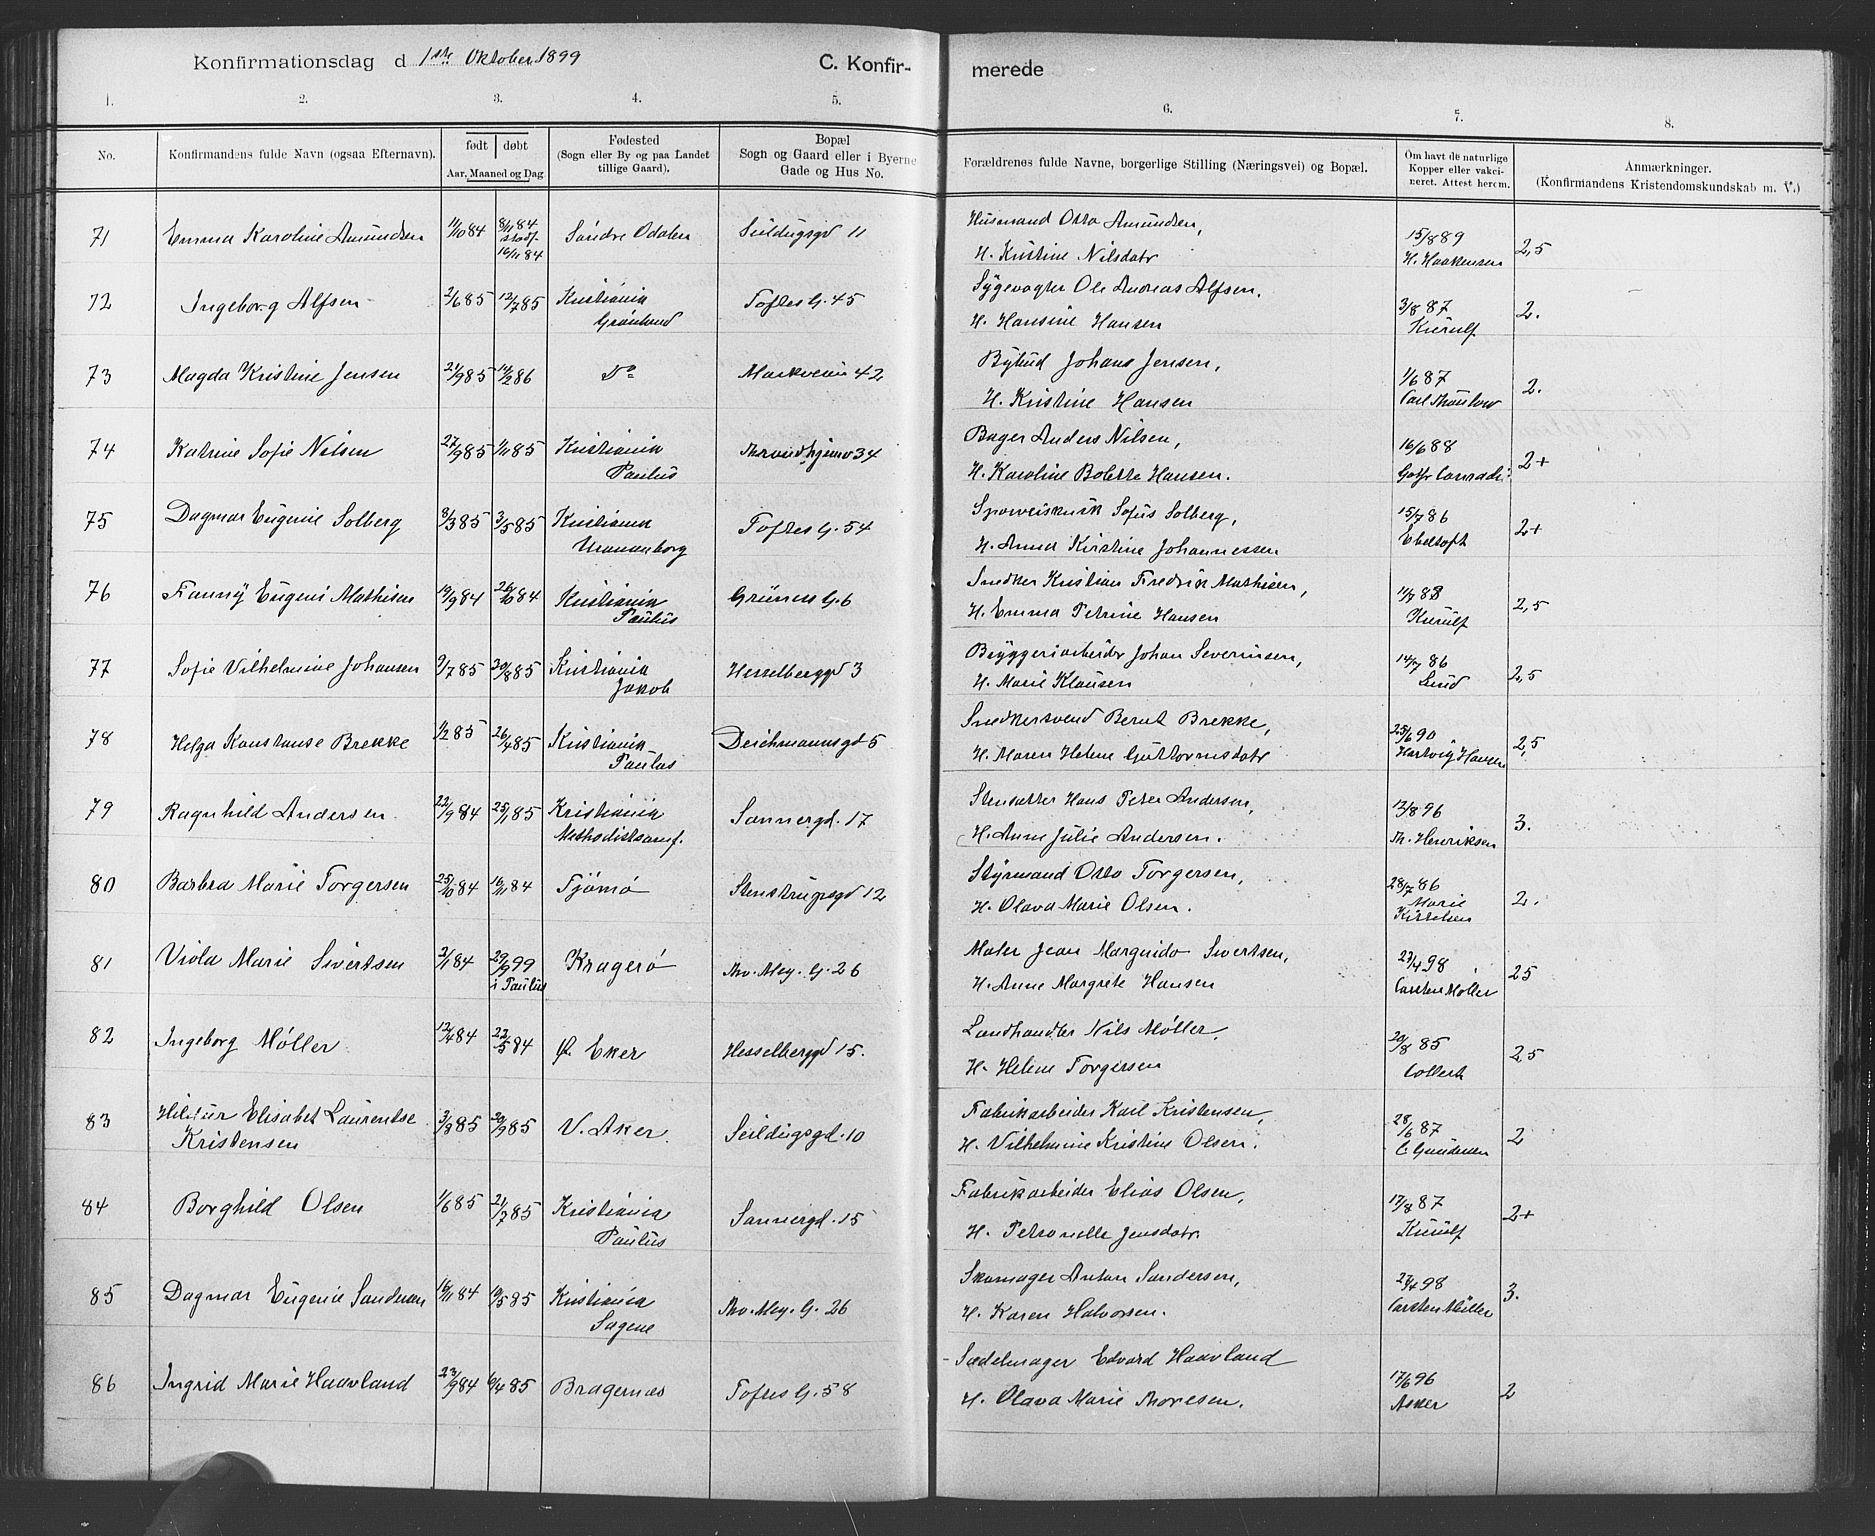 Konfirmationsdag d 1ste Oktober 1899
C. Konfir-
merede
1. 2. 3. 4. 5. 6. 7. 8.
No.
Konfirmandens fulde Navn (ogsaa Efternavn).
født døbt
Aar, Maaned og Dag
Fødested
(Sogn eller By og paa Landet
tillige Gaard).
Bopæl
Sogn og Gaard eller i Byerne
Gade og Hus No.
Forældrenes fulde Navne, borgerlige Stilling (Næringsvei) og Bopæl.
Om havt de naturlige
Kopper eller vakci-
neret. Attest herom.
Anmærkninger.
(Konfirmandens Kristendomskundskab m. V.)
71 Emma Karoline Amundsen 11/10 84 8/11 84 Søndre Odalen Seildugsgd 11 Husmand Otto Amundsen, 15/8 89 2,5
16/11 84 H. Kristine Nilsdatr H. Haakensen
72 Ingeborg Alfsen 2/6 85 12/7 85 Kristiania Toftes G. 45 Sygevogter Ole Andreas Alfsen, 3/8 87 2.
Grønland H. Hansine Hansen Kierulf
73 Magda Kristine Jensen 21/9 85 14/2 86 Do Markveien 42 Bybud Johans Jensen, 1/6 87 2.
H. Kristine Hansen Carl Thaulow
74 Katrine Sofie Nilsen 27/9 85 1/11 85 Kristiania 34 Bager Anders Nilsen, 16/6 88 2+
Paulus H. Karoline Bolette Hansen. Conradi
75 Dagmar Eugenie Solberg 8/3 85 3/5 85 Kristiania Toftes G. 54 Sporveiskusk Sofus Solberg, 15/7 86 2+
Uranienborg H. Anna Kirstine Johannessen Ebeltoft
76 Fanny Eugeni Mathisen 19/9 84 26/10 84 Kristiania Grüners G. 6 Snedker Kristian Fredrik Mathisen, 11/7 88 2,5
Paulus H. Emma Petrine Hansen Kierulf
77 Sofie Vilhelmine Johansen 9/7 85 30/8 85 Kristiania Hesselberggd 3 Bryggeriarbeider Johan Severinsen, 14/7 86 2,5
Jakob H. Marie Klausen Lund
78 Helga Konstanse Brekke 1/2 85 26/4 85 Kristiania Deichmannsgd 5 Snedkersvend Bernt Brekke, 25/6 90 2,5
Paulus H. Maren Helene Guttormsdatr Hartvig Hansen
79 Ragnhild Andersen 22/9 84 25/1 85 Kristiania Sannergd. 17 Stensætter Hans Peter Andersen, 12/8 96 3.
Methodistsamf. H. Anne Julie Andersen. Th. Henriksen
80 Barbra Marie Torgersen 25/10 84 16/11 84 Tjømø Stenstrupsgd 12 Styrmand Otto Torgersen, 28/7 86 2.
H. Olava Marie Olsen. Marie
81 Viola Marie Sivertsen 2/1 84 29/9 99 Kragerø Thv. Mey. G. 26 Maler Jean Marguido Sivertsen, 27/4 98 25
i Paulus H. Anne Margrete Hansen Carsten Møller
82 Ingeborg Møller 12/4 84 22/5 84 Ø. Eker Hesselberggd 15. Landhandler Nils Møller, 20/8 85 2,5
H. Helene Torgersen Collett
83 Hildur Elisabet Laurentse 3/3 85 20/9 85 V. Aker Seildugsgd. 10 Fabrikarbeider Karl Kristensen, 28/6 87 2
Kristensen H. Vilhelmine Kristine Olsen. C Gundersen
84 Borghild Olsen 1/6 85 21/7 85 Kristiania Sannergd. 15 Fabrikarbeider Elias Olsen, 17/8 87 2+
Paulus H. Petronelle Jensdatr. Kierulf
85 Dagmar Eugenie Sandersen 18/11 84 10/5 85 Kristiania Thv. Mey. G. 26 Skomager Anton Sandersen, 27/4 98 3.
Sagene H. Karen Halvorsen. Carsten Müller
86 Ingrid Marie Haavland 23/9 84 6/4 85 Bragernæs Toftes G. 58 Sadelmager Edvard Haavland 17/6 96 2
H. Olava Marie Thoresen. Asker